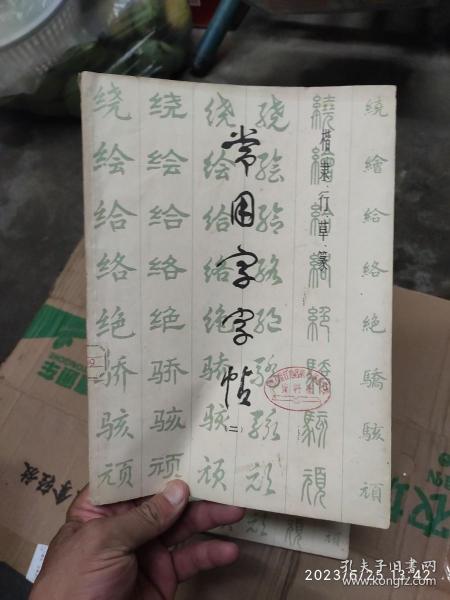 常用字字帖
(二)
楷隶·行·草·篆
绕 绕 绕 绕 繞 繞
绘 绘 绘 绘 繪 繪
给 给 给 给 給 給
络 络 络 络 絡 絡
绝 绝 绝 绝 絕 絶
骄 骄 骄 骄 驕 驕
骇 骇 骇 骇 駭 駭
顽 顽 顽 顽 頑 頑
资料
孔夫子旧书网
2023/6/25 13:42